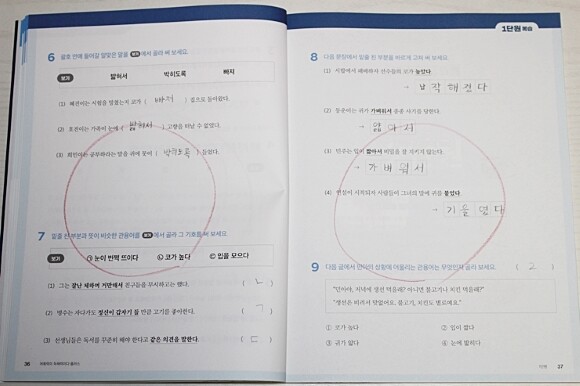 6 괄호 안에 들어갈 알맞은 말을 보기에서 골라 써 보세요.
보기 밟혀서 박히도록 빠지
(1) 혜진이는 시험을 망쳤는지 코가 ( 빠져 ) 집으로 돌아왔다.
(2) 호진이는 가족이 눈에 ( 밟혀서 ) 고향을 떠날 수 없었다.
(3) 희민이는 공부하라는 말을 귀에 못이 ( 박히도록 ) 들었다.
7 밑줄 친 부분과 뜻이 비슷한 관용어를 보기에서 골라 그 기호를 써 보세요.
보기 ㉠ 눈이 번쩍 뜨이다 ㉡ 코가 높다 ㉢ 입을 모으다
(1) 그는 잘난 체하며 거만해서 친구들을 무시하고는 했다. ( ㄴ )
(2) 명수는 자다가도 정신이 갑자기 들 만큼 고기를 좋아한다. ( ㄱ )
(3) 선생님들은 독서를 꾸준히 해야 한다고 같은 의견을 말한다. ( ㄷ )
36
1단원 복습
8 다음 문장에서 밑줄 친 부분을 바르게 고쳐 써 보세요.
(1) 시합에서 패배하자 선수들의 코가 높았다.
→ 납작해졌다
(2) 동준이는 귀가 가벼워서 종종 사기를 당한다.
→ 얇아서
(3) 민주는 입이 짧아서 비밀을 잘 지키지 않는다.
→ 가벼워서
(4) 연설이 시작되자 사람들이 그녀의 말에 귀를 붙었다.
→ 기울였다
9 다음 글에서 민아의 상황에 어울리는 관용어는 무엇인지 골라 보세요. ( 2 )
"민아야, 저녁에 생선 먹을래? 아니면 불고기나 치킨 먹을래?"
"생선은 비려서 말없어요. 불고기, 치킨도 별로예요."
① 코가 높다 ② 입이 짧다
③ 귀가 얇다 ④ 눈에 밟히다
37